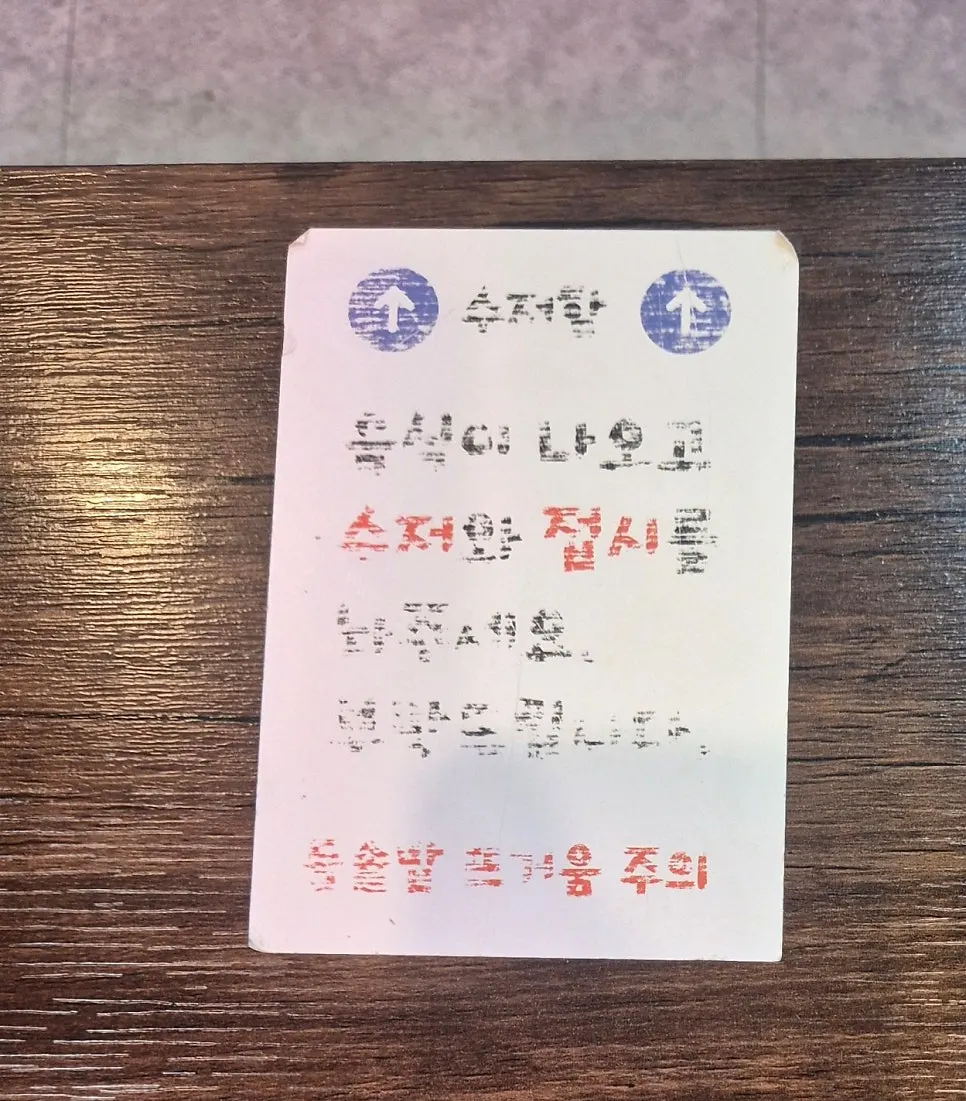 수저함
음식이 나오고
수저와 접시를
놔주세요.
부탁드립니다.
돌솥밥 뜨거움 주의